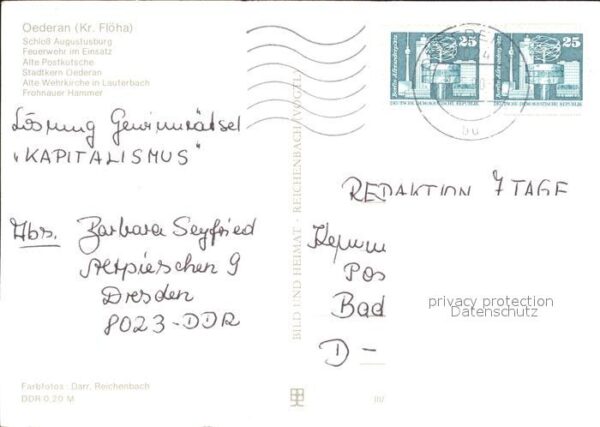 Oederan (Kr. Flöha)
Schloß Augustusburg
Feuerwehr im Einsatz
Alte Postkutsche
Stadtkern Oederan
Alte Wehrkirche in Lauterbach
Frohnauer Hammer
Lösung Gewinnrätsel
"KAPITALISMUS"
Abs. Barbara Seyfried
Altpieschen 9
Dresden
8023-DDR
Farbfotos: Darr, Reichenbach
DDR 0,20 M
BILD UND HEIMAT · REICHENBACH (VOGTL)
25
25
DEUTSCHE DEMOKRATISCHE REPUBLIK
DEUTSCHE DEMOKRATISCHE REPUBLIK
REDAKTION 7 TAGE
Pos
Bad
D -
privacy protection
Datenschutz
III/